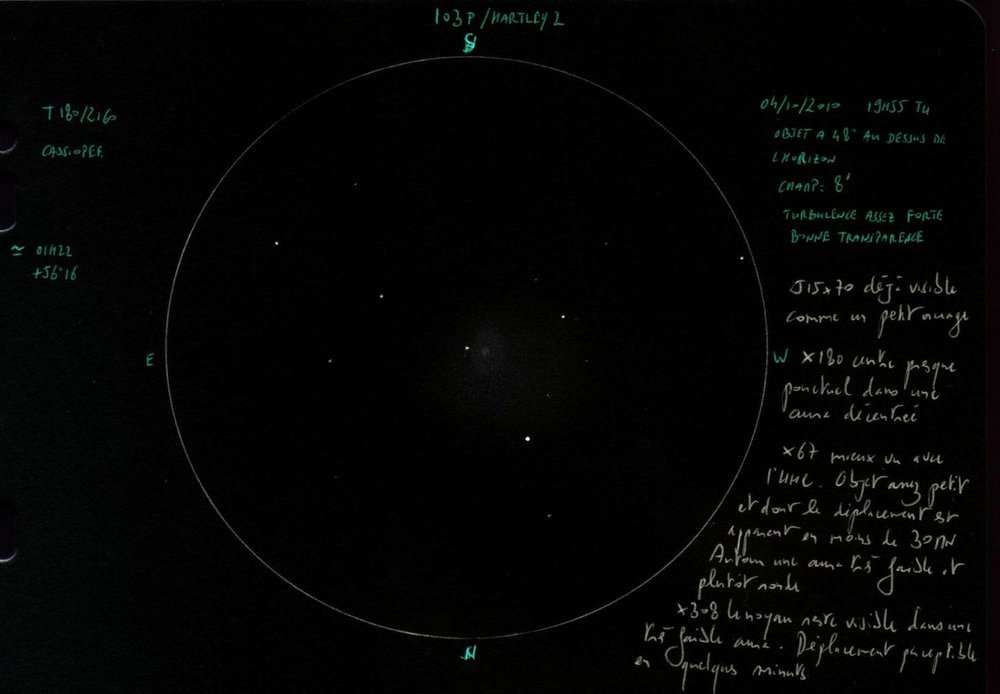 103P/HARTLEY 2
S
T 180/2160
CASSIOPEE
≃ 01H22
+56°16
E
04/10/2010 19H55 TU
OBJET A 48° AU DESSUS DE
L'HORIZON
CHAMP: 8'
TURBULENCE ASSEZ FORTE
BONNE TRANSPARENCE
J15x70 déjà visible
comme un petit nuage
W
x180 centre presque
ponctuel dans une
aura décentrée
x67 mieux vu avec
l'UHC. Objet assez petit
et dont le déplacement est
apparent en moins de 30MN
Autour une aura très faible et
plutôt ronde
x308 le noyau reste visible dans une
très faible aura. Déplacement perceptible
en quelques minutes
N